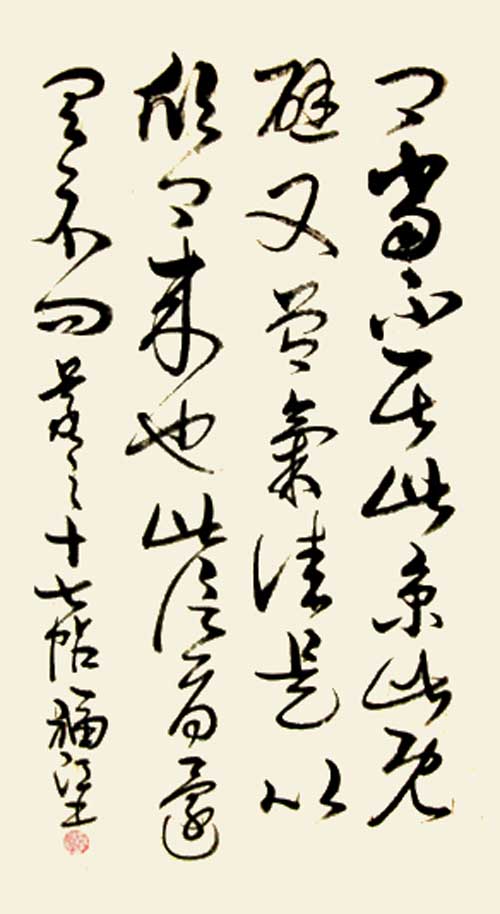 卿當不居此京此既
避又節氣佳是以
欣卿來也此信旨還
具示問羲之十七帖